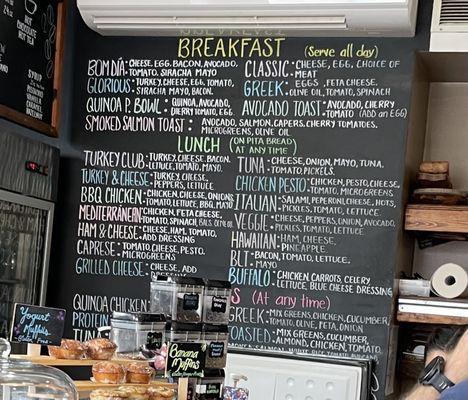 BREAKFAST (Serve all day)
BOM DÍA: CHEESE, EGG, BACON, AVOCADO, TOMATO, SIRACHA MAYO
GLORIOUS: TURKEY, CHEESE, EGG, TOMATO, SIRACHA MAYO
QUINOA P. BOWL: QUINOA, AVOCADO, CHERRY TOMATOES, EGG
SMOKED SALMON TOAST: AVOCADO, SALMON, CAPERS, CHERRY TOMATOES, MICROGREENS, OLIVE OIL
CLASSIC: CHEESE, EGG, CHOICE OF MEAT
GREEK: EGGS, FETA CHEESE, OLIVE OIL, TOMATO, SPINACH
AVOCADO TOAST: AVOCADO, CHERRY TOMATO (ADD an EGG)
LUNCH (ON PITA BREAD)
(AT ANY TIME)
TURKEY CLUB: TURKEY, CHEESE, BACON, LETTUCE, TOMATO, MAYO
TURKEY & CHEESE: TURKEY, CHEESE, PEPPERS, LETTUCE
BBQ CHICKEN: CHICKEN, CHEESE, ONIONS, TOMATO, LETTUCE, BBQ, MAYO
MEDITERRANEAN: CHICKEN, FETA CHEESE, TOMATO, SPINACH, BALS. OIL
HAM & CHEESE: CHEESE, HAM, TOMATO, ADD DRESSING
CAPRESE: TOMATO, CHEESE, PESTO, MICROGREENS
GRILLED CHEESE: CHEESE, ADD
TUNA: CHEESE, ONION, MAYO, TUNA, TOMATO, PICKELS.
CHICKEN PESTO: CHICKEN, PESTO, CHEESE, TOMATO, MICROGREENS
ITALIAN: SALAMI, PEPERONI, CHEESE, HOTS, PICKLES, TOMATO, LETTUCE
VEGGIE: CHEESE, PEPPERS, ONION, AVOCADO, PICKLES, TOMATO, LETTUCE
HAWAIIAN: HAM, CHEESE, PINEAPPLE
BLT: BACON, TOMATO, LETTUCE, MAYO
BUFFALO: CHICKEN, CARROTS, CELERY, LETTUCE, BLUE CHEESE DRESSING
S (At any time)
QUINOA CHICKEN
PROTEIN
GREEK: MIX GREENS, CHICKEN, CUCUMBER, TOMATO, OLIVE, FETA, ONION
TOASTED: MIX GREENS, CUCUMBER, ALMOND, CHICKEN
YOGURT MUFFINS
BANANA MUFFINS